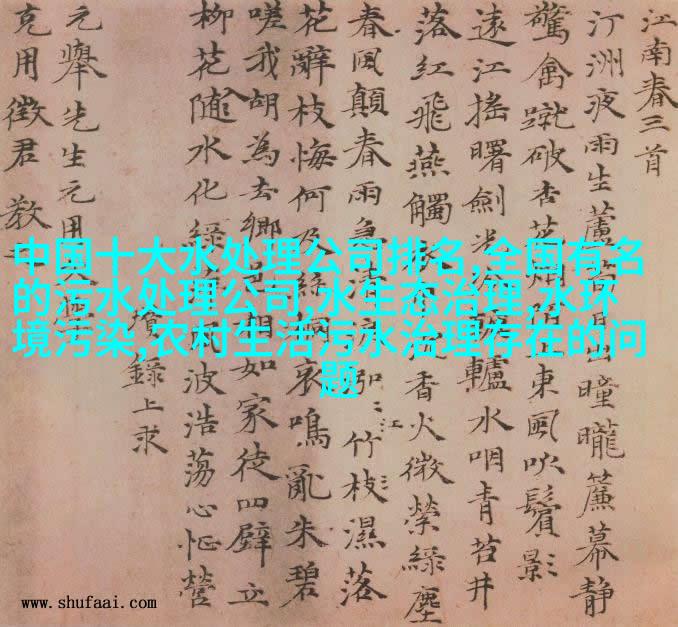 江南春三首
汀洲夜雨生蘆笋日出曈曨簾幕静
驚禽蹴破杏花烟陌上東風吹鬢影
遠江搖曙劍光轆轤水咽青苔井
落紅飛燕觸衣香火微縈綠塵
春風顛春雨急清泓江竹枝濕落
花辭枝悔何及絲桐哀鳴亂朱碧
嗟我胡為去鄉邑相如家徒四壁立
柳花随水化綠波浩蕩心怔營
瓚錄上求
元舉先生元用
克用徵君教
中国十大水处理公司排名,全国有名
的污水处理公司,水生态治理,水环
境污染,农村生活污水治理存在的问
题
www.shufaai.com